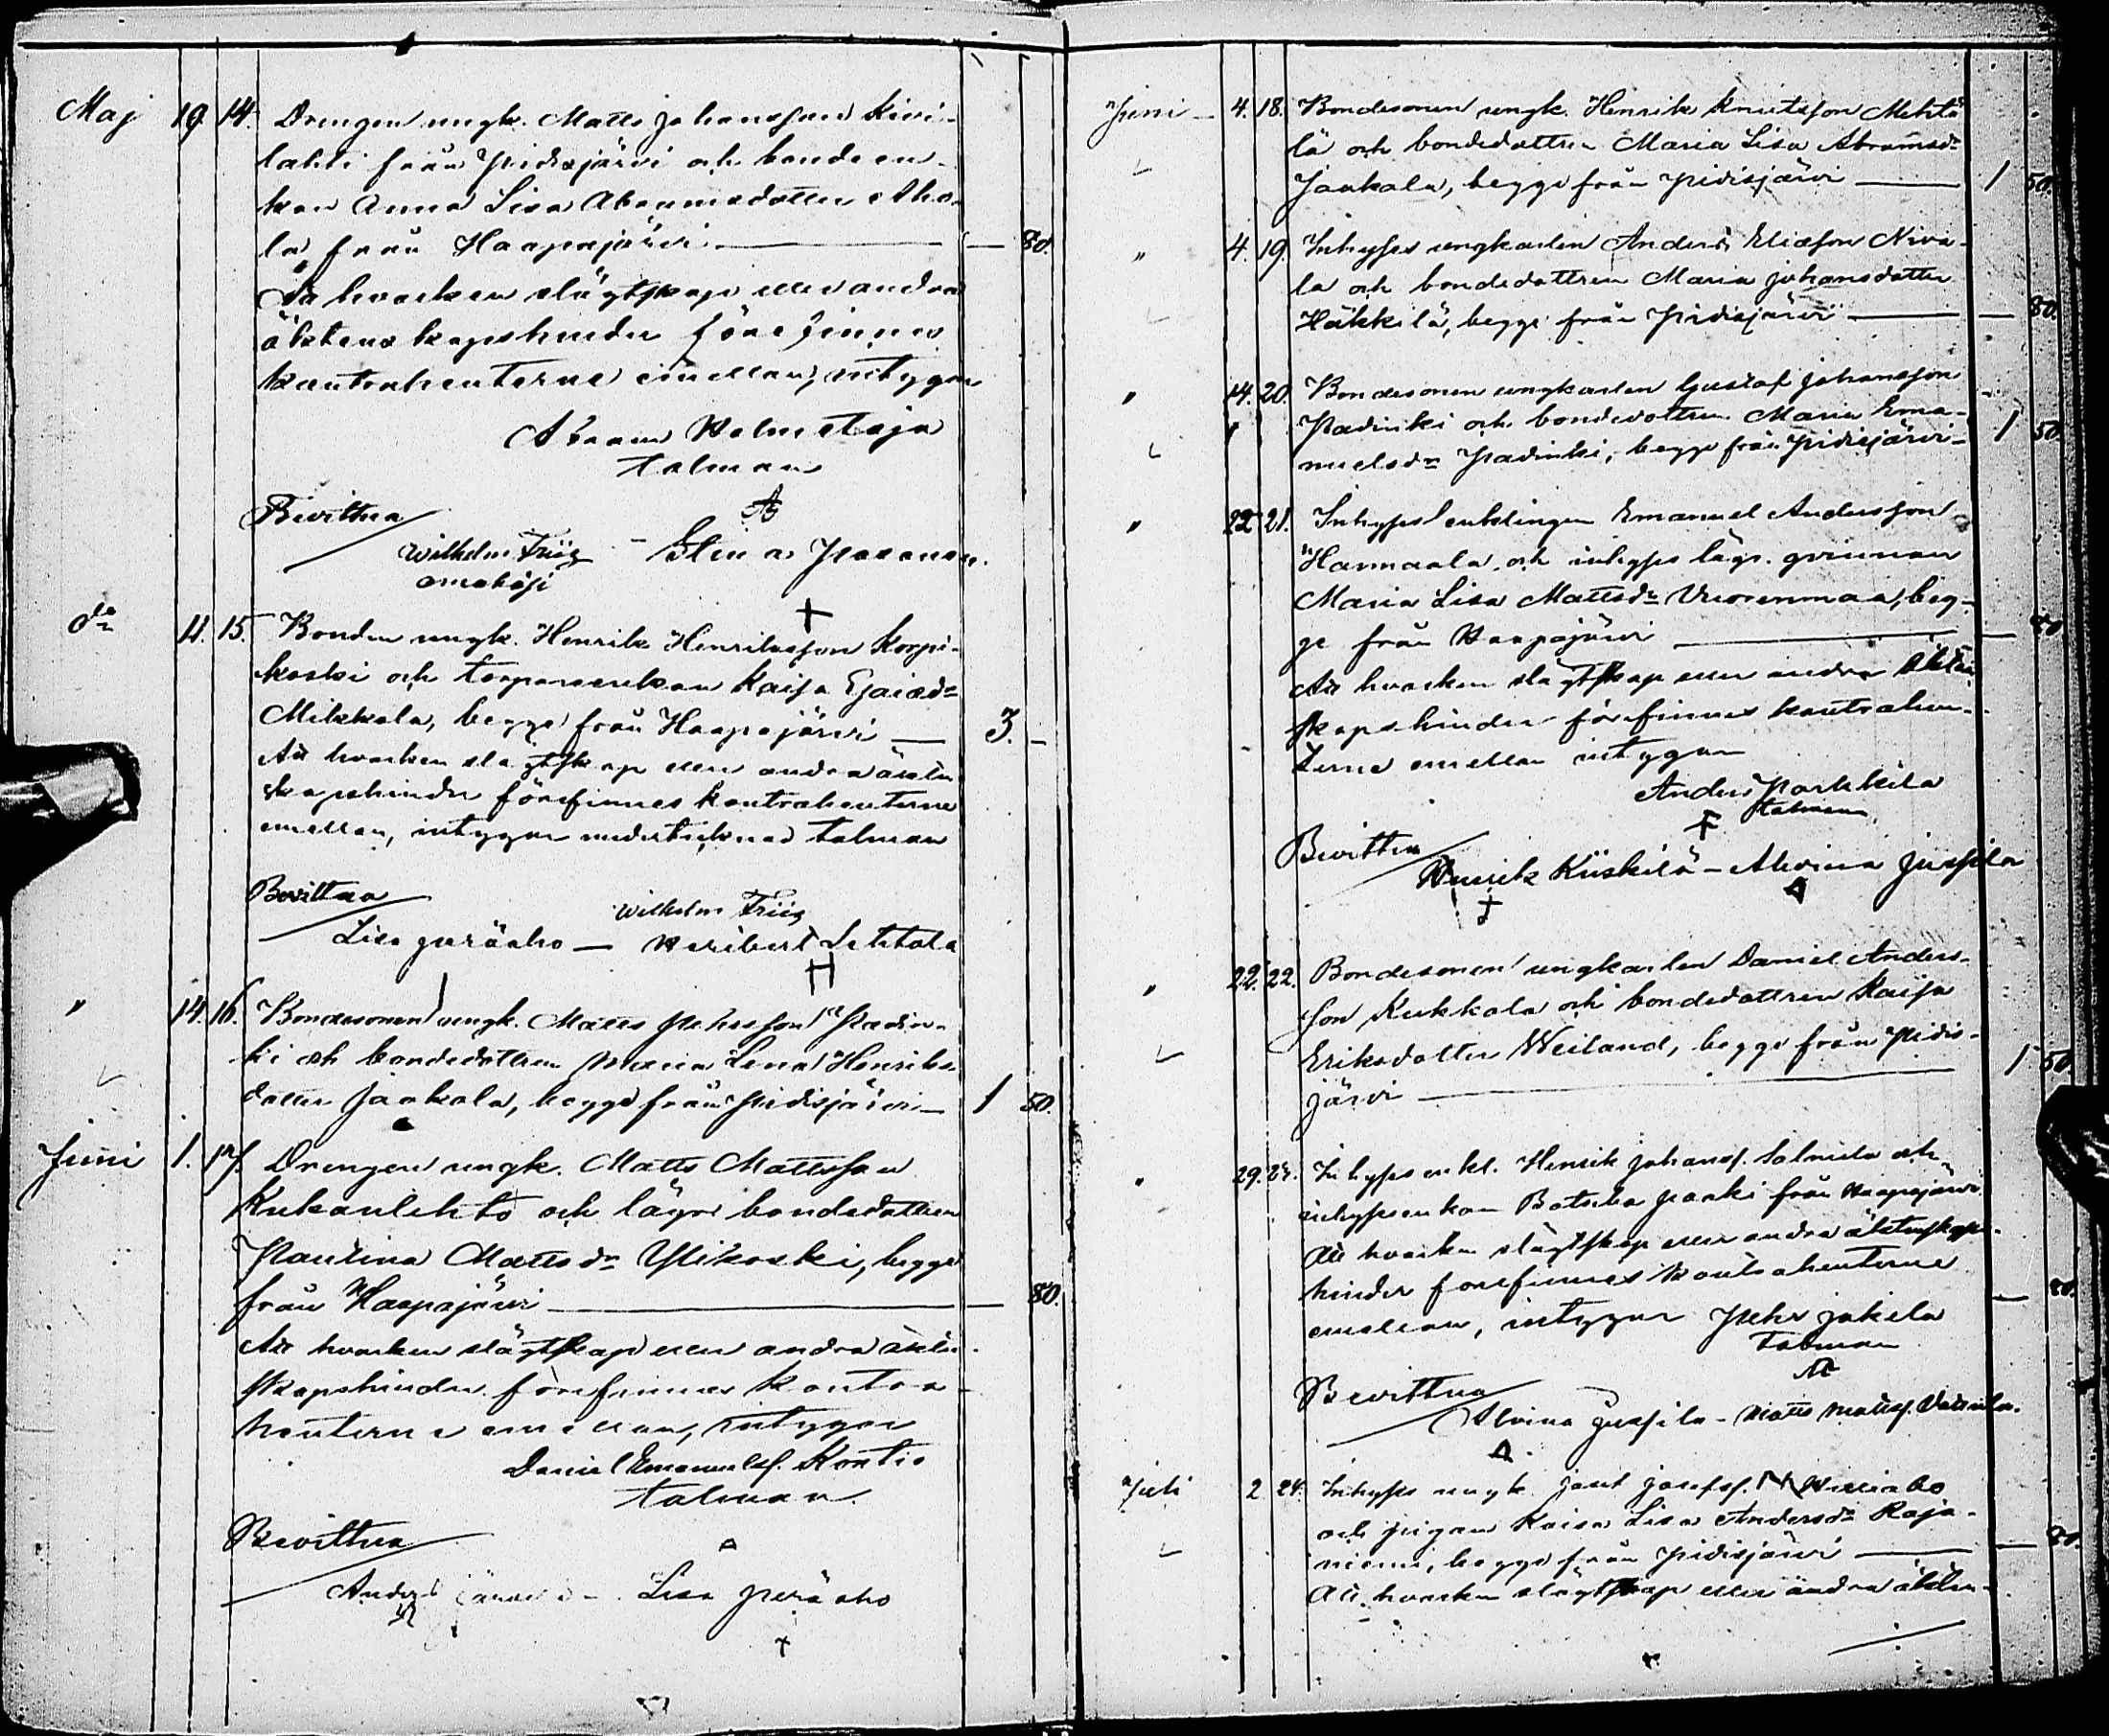 Maj 19. 14. Drengen ungk. Matts Johansson Kivi-
lahti från Pidisjärvi och bondeen-
kan Anna Lisa Abramsdotter Aho-
la från Haapajärvi — — 80.
Att hvarken slägtskap eller andra
äktenskapshinder förefinnes
kontrahenterne emellan, intygar
Abram
talman
Bevittna
Wilhelm Friis – Elina
omakäsi
do 11. 15. Bonden ungk. Henrik Henriksson Korpi-
koski och torpareenkan Kaisa Esaiasdr
Mikkola, begge från Haapajärvi — 3. –
Att hvarken slägtskap eller andra äkten
skapshinder förefinnes kontrahenterne
emellan, intygar undertecknad talman
Wilhelm Friis
Bevittna
Lisa Peräaho — Heribert Lehtola
" 14. 16. Bondesonen ungk. Matts Pehrsson Padin-
ki och bondedottren Maria Lena Henriks-
dotter Jaakola, begge från Pidisjärvi — 1 50.
Juni 1. 17. Drengen ungk. Matts Mattsson
Kukonlehto och lägr. bondedottren
Paulina Mattsdr Ylikoski, begge
från Haapajärvi — — 80.
Att hvarken slägtskap eller andra äkten-
skapshinder förefinnes kontra-
henterne emellan, intygar
Daniel Emanuelss. Kontio
talman.
Bevittna
Anders – Lisa Peräaho
Juni – 4. 18. Bondesonen ungk. Henrik Knutsson Mehtä-
lä och bondedottren Maria Lisa Abramsdr
Jaakola, begge från Pidisjärvi — 1 50.
" 4. 19. Inhyses ungkarlen Anders Eliasson Niva-
la och bondedottren Maria Johansdotter
Häkkilä, begge från Pidisjärvi — — 80.
" 14. 20. Bondesonen ungkarlen Gustaf Johansson
Padinki och bondedottren Maria Ema-
nuelsdr Padinki, begge från Pidisjärvi – 1 50.
" 22 21. Inhyses enklingen Emanuel Andersson
Hannaala och inhyses lägr. qvinnan
Maria Lisa Mattsdr Vuorenmaa, beg-
ge från Haapajärvi — — 80
Att hvarken slägtskap eller andra äkten
skapshinder förefinnes kontrahen-
terne emellan intygar
Anders Parkkila
talman
Bevittna
Henrik Kiiskilä – Alvina Jussila
" 22. 22. Bondesonen ungkarlen Daniel Anders-
son Kukkola och bondedottren Kaisa
Eriksdotter Weiland, begge från Pidis-
järvi — 1 50
" 29. 23. Inhyses enkl. Henrik Johanss. Salmela och
inhysesenkan från Haapajärvi
Att hvarken slägtskap eller andra äktenskaps-
hinder förefinnes kontrahenterne
emellan, intygar Pehr Jokela — 80.
Talman
Bevittna
Alvina Jussila – Matts Mattss.
Juli 2 24. Inhyses ungk. Josefss.
och pigan Kaisa Lisa Andersdr Raja-
niemi, begge från Pidisjärvi — — 80.
Att hvarken slägtskap eller andra äkten-